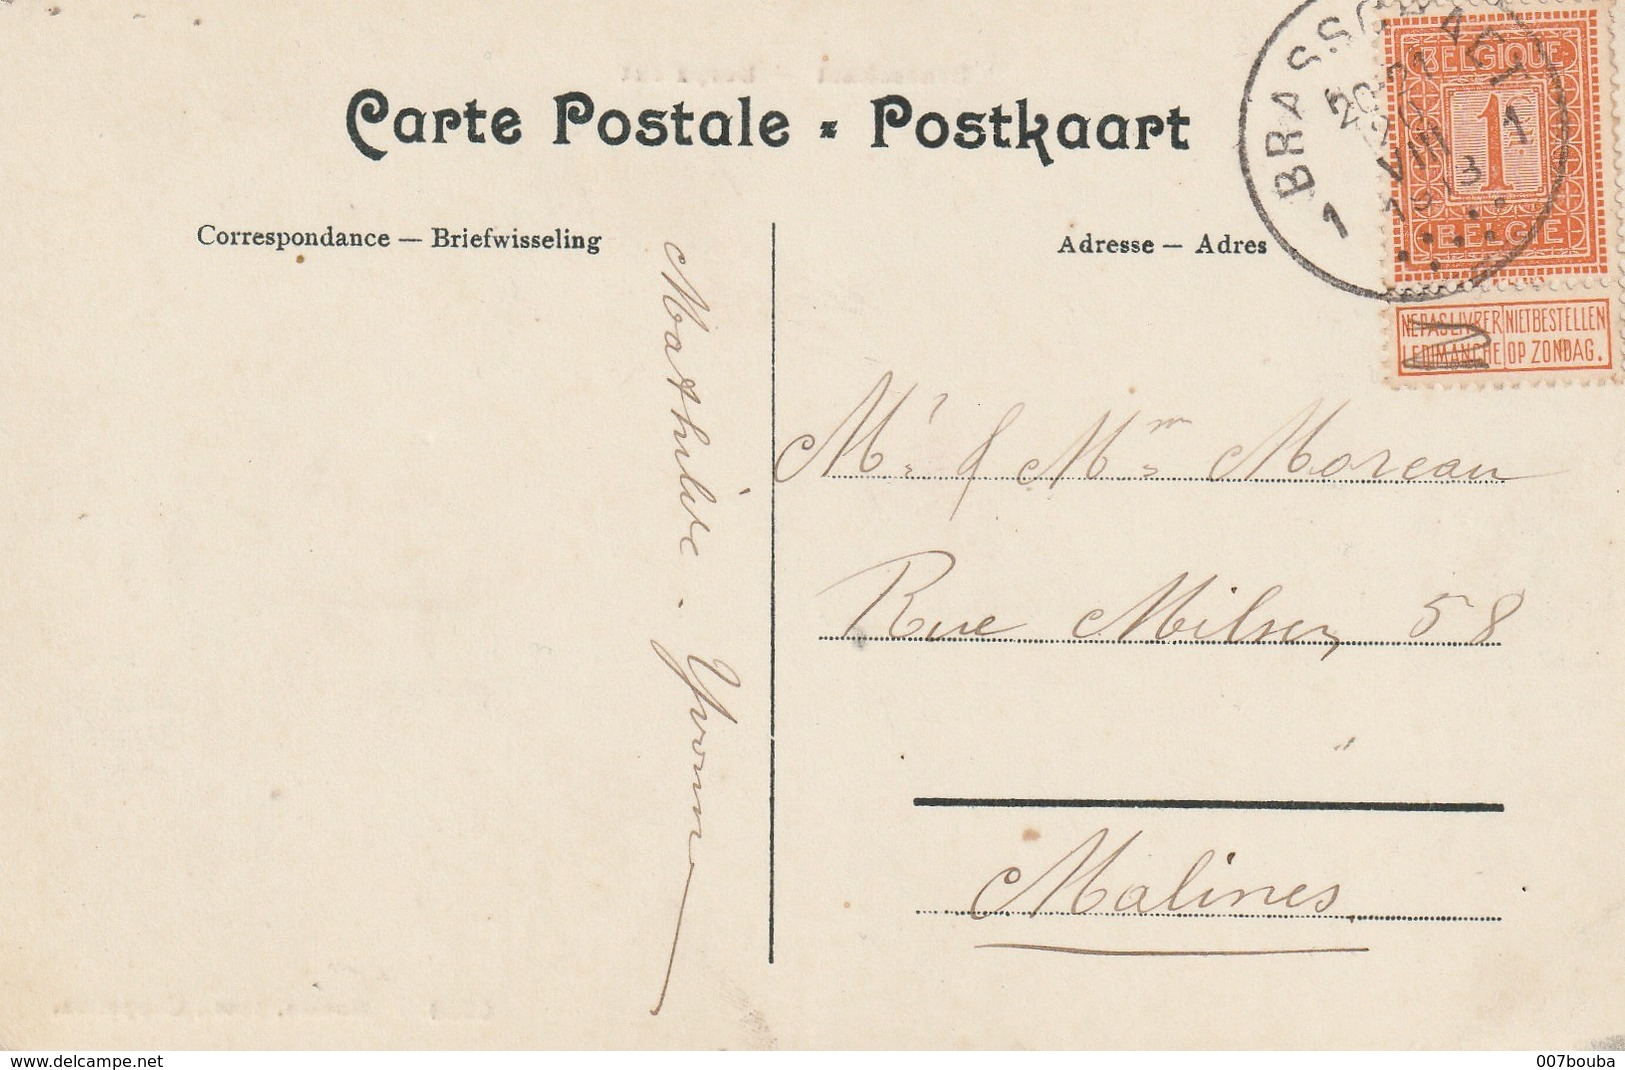 Carte Postale - Postkaart
Correspondance — Briefwisseling
Adresse — Adres
BRASSCHAET
1 1
20-21
VIII
1913
BELGIQUE
1
BELGIË
NE PAS LIVRER LE DIMANCHE
NIET BESTELLEN OP ZONDAG.
Mathilde. Yvonne
Mr & Mm Moreau
Rue Milsen, 58
Malines
www.delcampe.net
007bouba